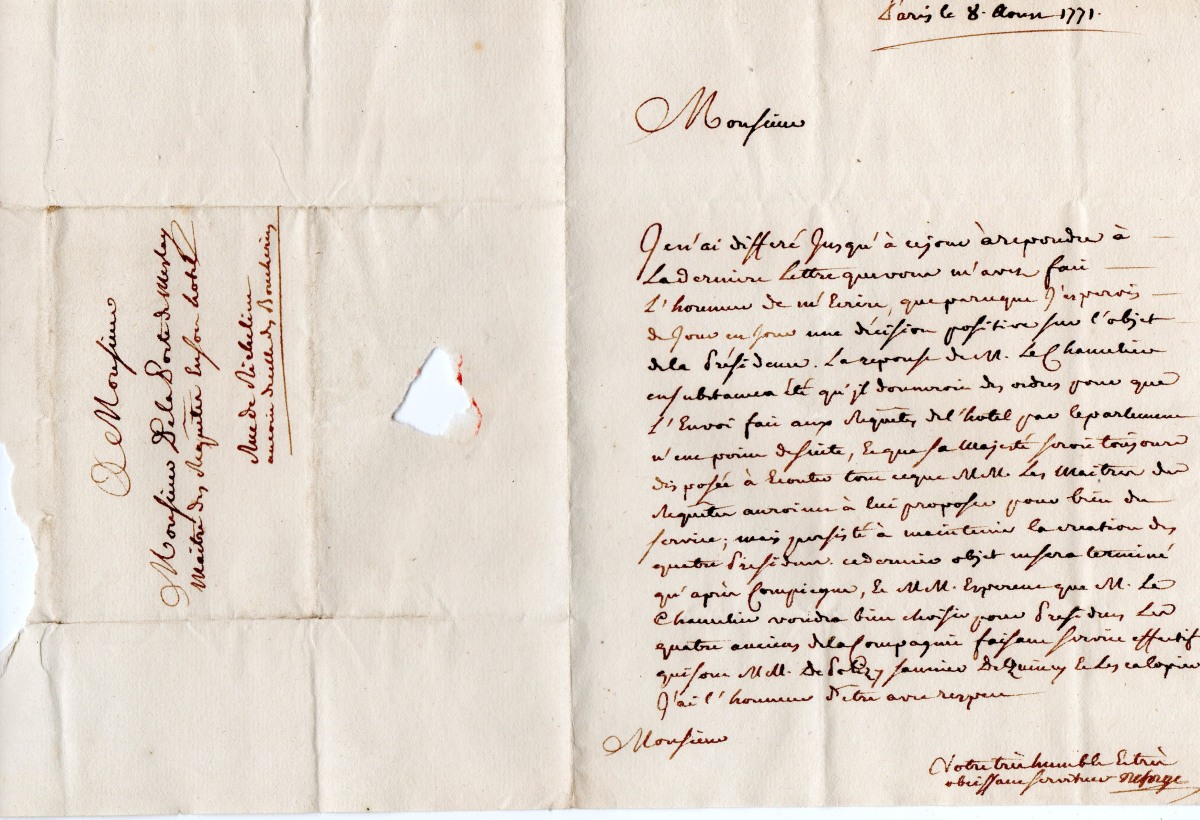 A Monsieur
Monsieur De la Porte de Meslay
Maitre des Requêtes En son hotel
Rue de Richelieu
ancien des Boucheries
Paris le 8. Aoust 1771.
Monsieur
Je n'ai differé Jusqu'à ce jour à repondre à
La derniere Lettre que vous m'avez fait
L'honneur de m'Ecrire, que parceque J'esperois
de Jour en Jour une décision positive sur l'objet
de la Présidence. La reponse de M. Le Chancelier
en substance a Eté qu'jl donneroit des ordres pour que
L'Envoi fait aux Requêtes de l'hotel par le parlement
n'eut point de suite, Et que sa Majesté seroit toujours
disposée à Ecouter tout ce que MM. Les Maitres des
Requêtes auroient à lui proposer pour bien du
service; mais persisté à maintenir la creation des
quatre Présidens. ce dernier objet ne sera terminé
qu'après Compiegne, Et MM. Esperent que M. Le
Chancelier voudra bien choisir pour Présidens Les
quatre anciens de la Compagnie faisant service effectif
qui sont MM. De Saunier De Quincy Et Lescalopier
J'ai l'honneur d'etre avec respect
Monsieur
Votre très humble Et très
obeissant serviteur